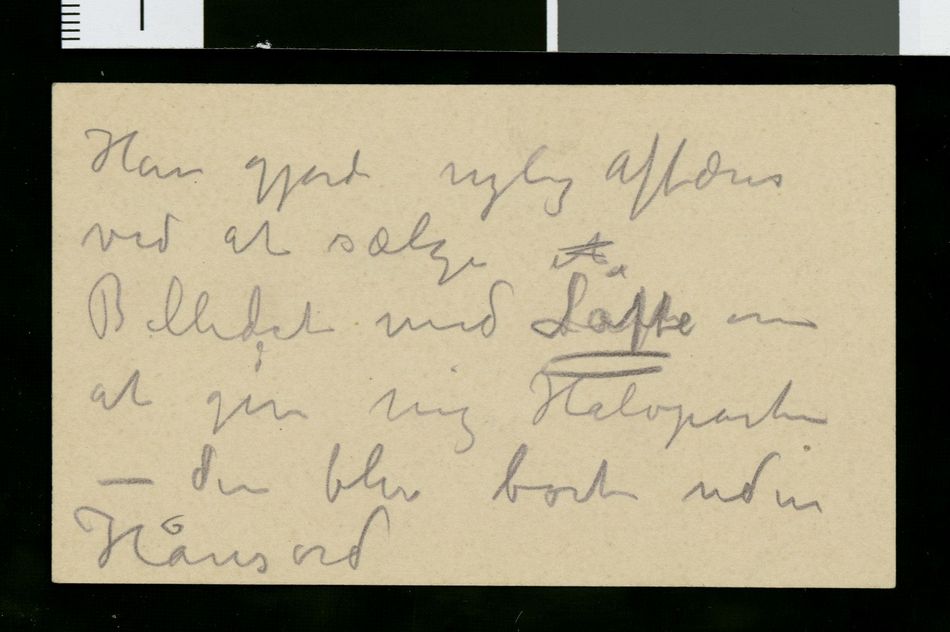 Han gjord nylig Aftræns
ved at sælge
Billedet med Løfte om
at give mig Halvparten
— den blev borte uden
Hånsord